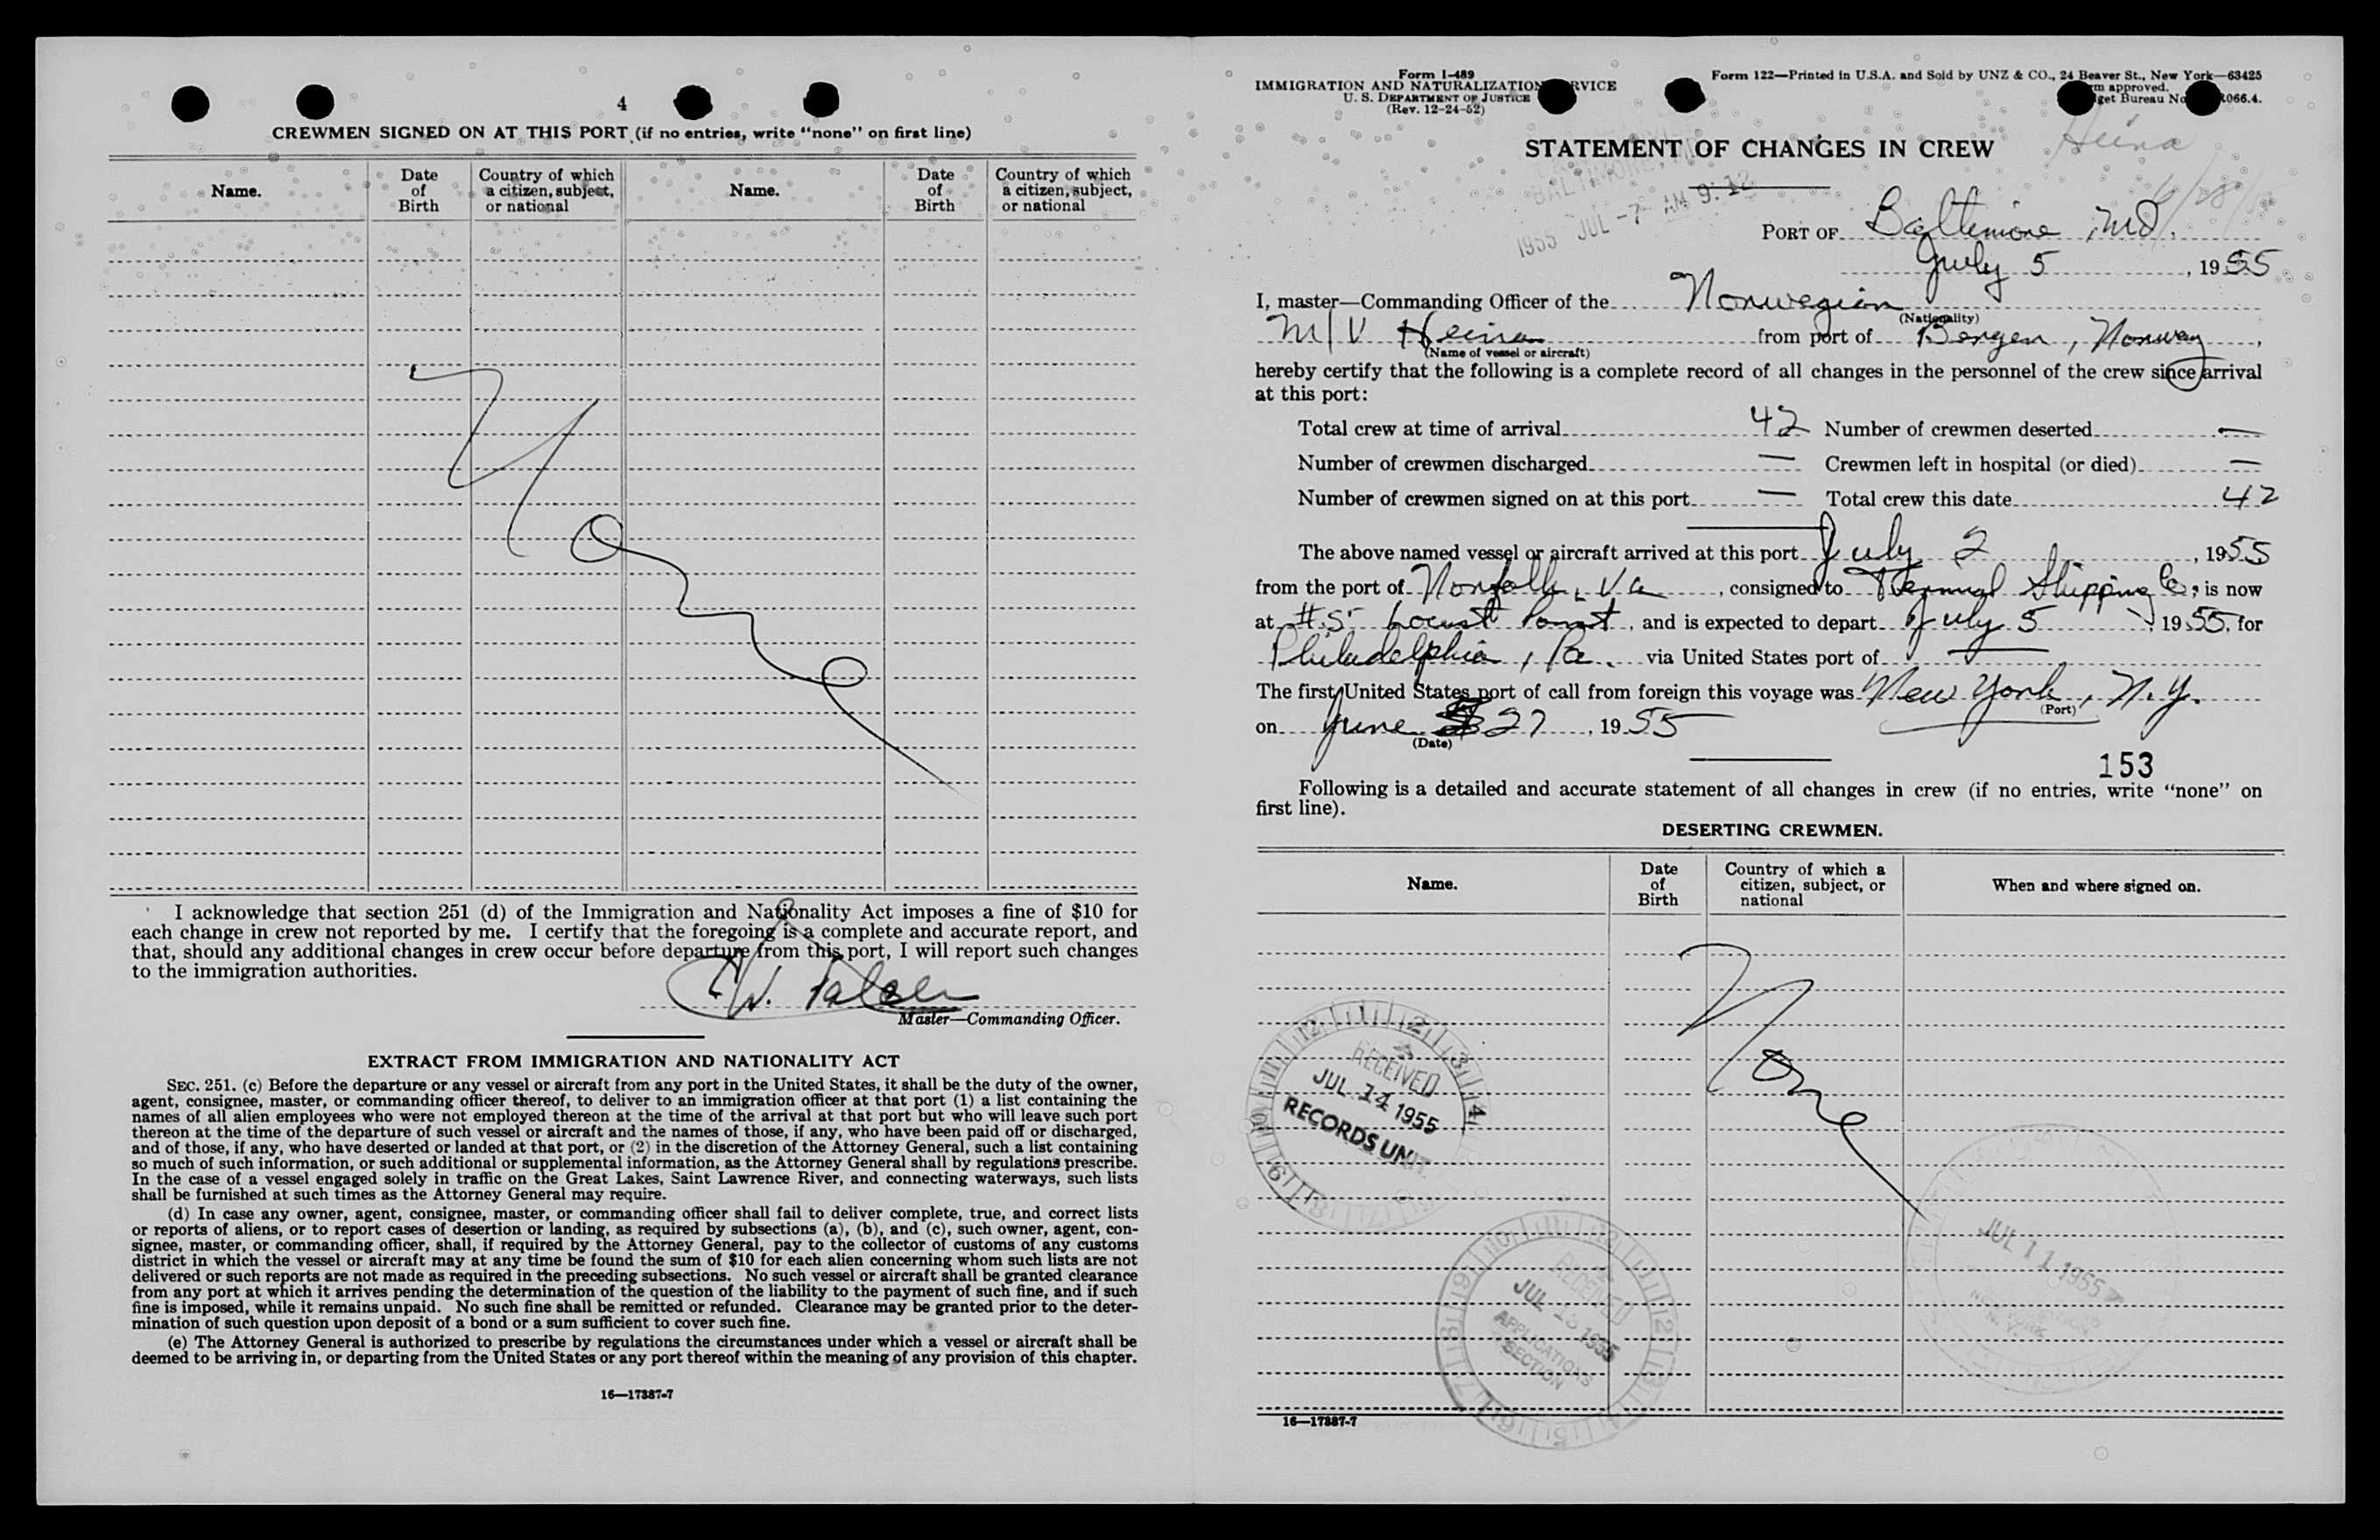 4
CREWMEN SIGNED ON AT THIS PORT (if no entries, write “none” on first line)
Name.
Date of Birth
Country of which a citizen, subject, or national
Name.
Date of Birth
Country of which a citizen, subject, or national
None
I acknowledge that section 251 (d) of the Immigration and Nationality Act imposes a fine of $10 for
each change in crew not reported by me. I certify that the foregoing is a complete and accurate report, and
that, should any additional changes in crew occur before departure from this port, I will report such changes
to the immigration authorities.
Master—Commanding Officer.
EXTRACT FROM IMMIGRATION AND NATIONALITY ACT
SEC. 251. (c) Before the departure or any vessel or aircraft from any port in the United States, it shall be the duty of the owner,
agent, consignee, master, or commanding officer thereof, to deliver to an immigration officer at that port (1) a list containing the
names of all alien employees who were not employed thereon at the time of the arrival at that port but who will leave such port
thereon at the time of the departure of such vessel or aircraft and the names of those, if any, who have been paid off or discharged,
and of those, if any, who have deserted or landed at that port, or (2) in the discretion of the Attorney General, such a list containing
so much of such information, or such additional or supplemental information, as the Attorney General shall by regulations prescribe.
In the case of a vessel engaged solely in traffic on the Great Lakes, Saint Lawrence River, and connecting waterways, such lists
shall be furnished at such times as the Attorney General may require.
(d) In case any owner, agent, consignee, master, or commanding officer shall fail to deliver complete, true, and correct lists
or reports of aliens, or to report cases of desertion or landing, as required by subsections (a), (b), and (c), such owner, agent, con-
signee, master, or commanding officer, shall, if required by the Attorney General, pay to the collector of customs of any customs
district in which the vessel or aircraft may at any time be found the sum of $10 for each alien concerning whom such lists are not
delivered or such reports are not made as required in the preceding subsections. No such vessel or aircraft shall be granted clearance
from any port at which it arrives pending the determination of the question of the liability to the payment of such fine, and if such
fine is imposed, while it remains unpaid. No such fine shall be remitted or refunded. Clearance may be granted prior to the deter-
mination of such question upon deposit of a bond or a sum sufficient to cover such fine.
(e) The Attorney General is authorized to prescribe by regulations the circumstances under which a vessel or aircraft shall be
deemed to be arriving in, or departing from the United States or any port thereof within the meaning of any provision of this chapter.
16—17887-7
Form I-489
IMMIGRATION AND NATURALIZATION SERVICE
U. S. DEPARTMENT OF JUSTICE
(Rev. 12-24-52)
Form 122—Printed in U.S.A. and Sold by UNZ & CO., 24 Beaver St., New York—63425
approved.
get Bureau No 066.4.
Heina
STATEMENT OF CHANGES IN CREW
BALTIMORE
1955 JUL -7 AM 9:12
PORT OF Baltimore, Md.
July 5, 1955
I, master—Commanding Officer of the Norwegian
(Nationality)
M/V Heina from port of Bergen, Norway,
(Name of vessel or aircraft)
hereby certify that the following is a complete record of all changes in the personnel of the crew since arrival
at this port:
Total crew at time of arrival 42 Number of crewmen deserted —
Number of crewmen discharged — Crewmen left in hospital (or died) —
Number of crewmen signed on at this port — Total crew this date 42
The above named vessel or aircraft arrived at this port July 2, 1955
from the port of Norfolk, Va, consigned to Shipping Co, is now
at #5 Locust Point, and is expected to depart July 5, 1955, for
Philadelphia, Pa. via United States port of —
The first United States port of call from foreign this voyage was New York, N.Y.
(Port)
on June 27, 1955
(Date)
153
Following is a detailed and accurate statement of all changes in crew (if no entries, write “none” on
first line).
DESERTING CREWMEN.
Name.
Date of Birth
Country of which a citizen, subject, or national
When and where signed on.
None
RECEIVED
JUL 14 1955
RECORDS UNIT
RECEIVED
JUL 1955
APPLICATIONS
SECTION
JUL 11 1955
16—17887-7